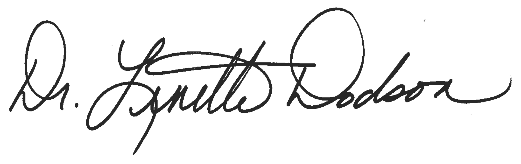 Dr. Lynette Dodson